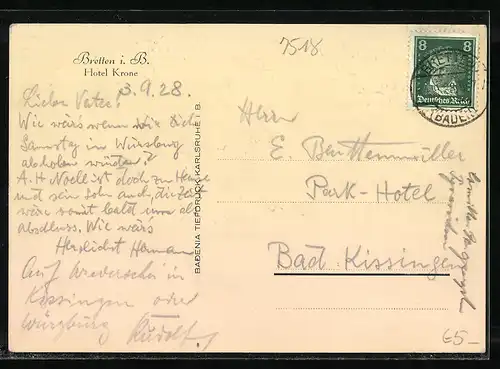 7518
Bretten i. B.
Hotel Krone
3.9.28.
Lieber Vater!
Wie wärs wenn wir Dich
Samstag in Würzburg
abholen würden?
A. H. Noell ist doch zu Hause
und sein Sohn auch, die Zeit
wäre somit bald um
abschluss. Wie wärs
Herzlichst Hermann
Auf Wiedersehn in
Kissingen oder
Würzburg Rudolf.
BADENIA TIEFDRUCK KARLSRUHE I. B.
8 8
Deutsches Reich
BRETTEN
(BADEN)
Herrn
E. Beuttenmüller
Park-Hotel
Bad Kissingen
65-